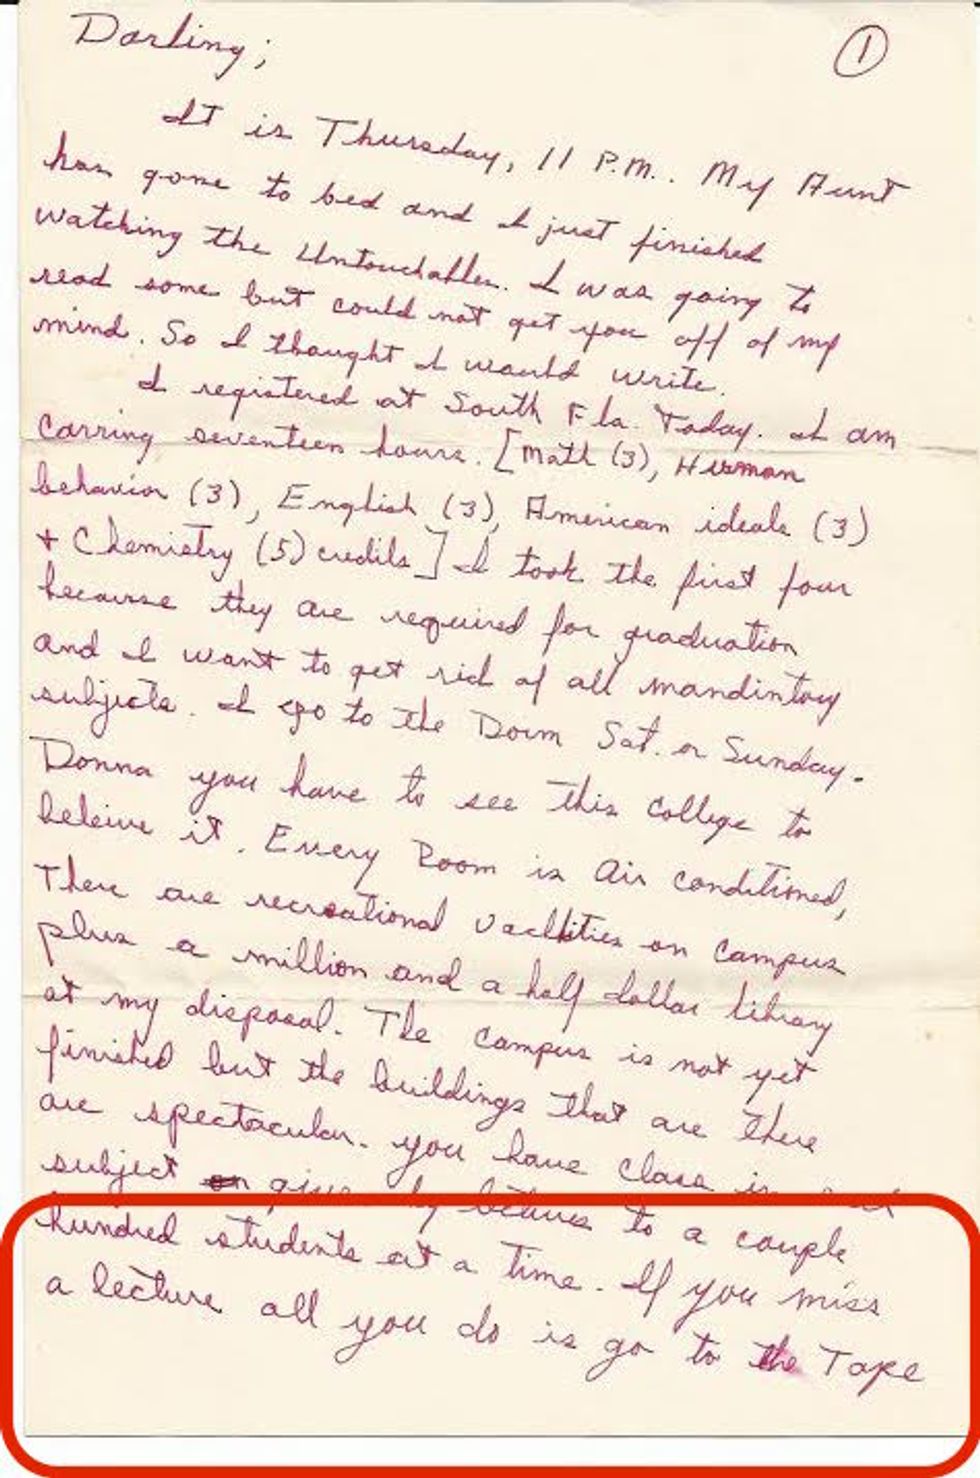 Darling;
1
It is Thursday, 11 P.M.. My Aunt
has gone to bed and I just finished
watching the Untouchables. I was going to
read some but could not get you off of my
mind. So I thought I would write.
I registered at South Fla. Today. I am
carring seventeen hours. [Math (3), Human
behavior (3), English (3), American ideals (3)
+ Chemistry (5) credits] I took the first four
because they are required for graduation
and I want to get rid of all mandintory
subjects. I go to the Dorm Sat. or Sunday.
Donna you have to see this college to
beleive it. Every Room is Air conditioned,
There are recreational vacilities on campus
plus a million and a half dollar library
at my disposal. The campus is not yet
finished but the buildings that are there
are spectacular. you have class in
subject to a couple
hundred students at a time. If you miss
a lecture all you do is go to the Tape